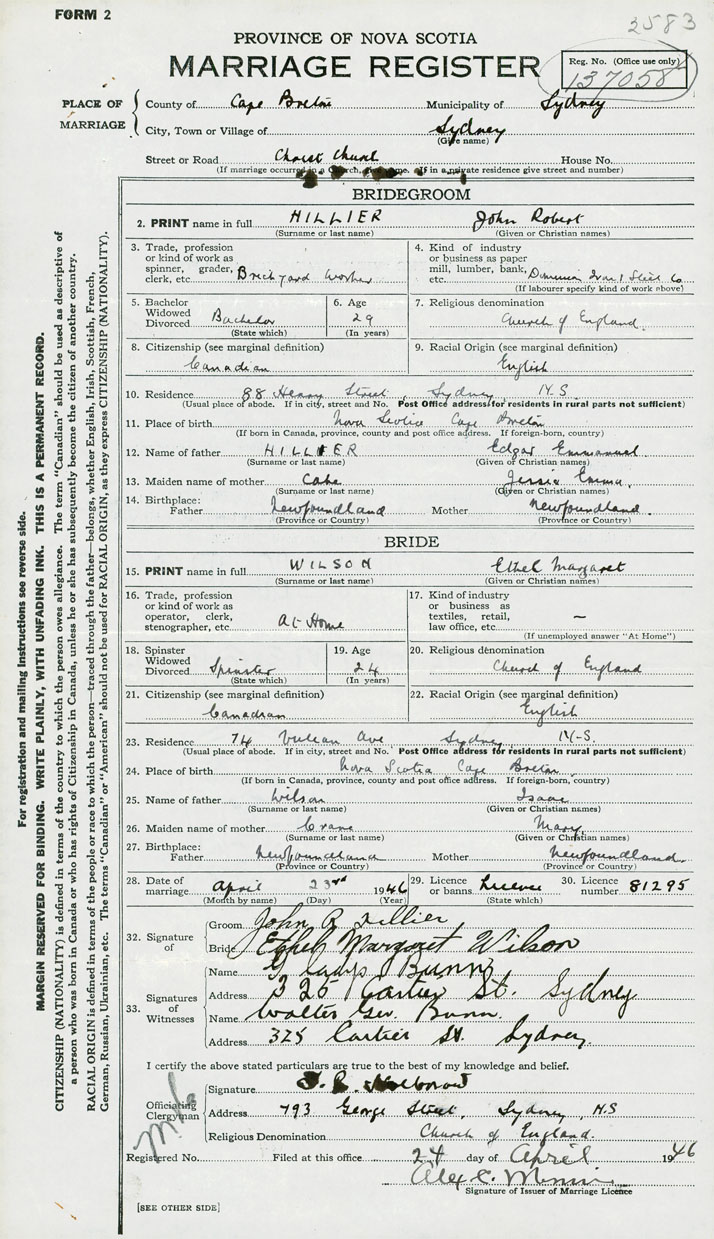 FORM 2
2583
PROVINCE OF NOVA SCOTIA
MARRIAGE REGISTER
Reg. No. (Office use only)
137058
PLACE OF MARRIAGE
County of Cape Breton Municipality of Sydney
City, Town or Village of Sydney
(Give name)
Street or Road Christ Church House No.
(If marriage occurred in a Church, give name. If in a private residence give street and number)
BRIDEGROOM
2. PRINT name in full HILLIER John Robert
(Surname or last name) (Given or Christian names)
3. Trade, profession or kind of work as spinner, grader, clerk, etc. Brickyard Worker
4. Kind of industry or business as paper mill, lumber, bank, Dominion Iron & Steel Co
(If labourer specify kind of work above)
5. Bachelor Widowed Divorced Bachelor
(State which)
6. Age 29
(In years)
7. Religious denomination
Church of England.
8. Citizenship (see marginal definition)
Canadian
9. Racial Origin (see marginal definition)
English
10. Residence 88 Henry Street, Sydney N.S
(Usual place of abode. If in city, street and No. Post Office address for residents in rural parts not sufficient)
11. Place of birth Nova Scotia Cape Breton
(If born in Canada, province, county and post office address. If foreign-born, country)
12. Name of father HILLIER Edgar Emmanuel
(Surname or last name) (Given or Christian names)
13. Maiden name of mother Cake Jessie Emma.
(Surname or last name) (Given or Christian names)
14. Birthplace:
Father Newfoundland Mother Newfoundland.
(Province or Country) (Province or Country)
BRIDE
15. PRINT name in full WILSON Ethel Margaret
(Surname or last name) (Given or Christian names)
16. Trade, profession or kind of work as operator, clerk, stenographer, etc. At Home
17. Kind of industry or business as textiles, retail, law office, etc. –
(If unemployed answer "At Home")
18. Spinster Widowed Divorced Spinster
(State which)
19. Age 24
(In years)
20. Religious denomination
Church of England
21. Citizenship (see marginal definition)
Canadian
22. Racial Origin (see marginal definition)
English
23. Residence 74 Vulcan Ave Sydney N-S.
(Usual place of abode. If in city, street and No. Post Office address for residents in rural parts not sufficient)
24. Place of birth Nova Scotia Cape Breton
(If born in Canada, province, county and post office address. If foreign-born, country)
25. Name of father Wilson Isaac
(Surname or last name) (Given or Christian names)
26. Maiden name of mother Crane Mary
(Surname or last name) (Given or Christian names)
27. Birthplace:
Father Newfoundland Mother Newfoundland.
(Province or Country) (Province or Country)
28. Date of marriage April 23rd 1946
(Month by name) (Day) (Year)
29. Licence or banns Licence
(State which)
30. Licence number 81295
32. Signature of
Groom John R Hillier
Bride Ethel Margaret Wilson
33. Signatures of Witnesses
Name Gladys Bunn
Address 325 Cartier St. Sydney
Name Walter Geo. Bunn.
Address 325 Cartier St. Sydney.
I certify the above stated particulars are true to the best of my knowledge and belief.
Officiating Clergyman
Signature
Address 793 George Street, Sydney, N.S
Religious Denomination Church of England.
Registered No. Filed at this office 24 day of April 1946
Alex C.
Signature of Issuer of Marriage Licence
[SEE OTHER SIDE]
For registration and mailing instructions see reverse side.
MARGIN RESERVED FOR BINDING. WRITE PLAINLY, WITH UNFADING INK. THIS IS A PERMANENT RECORD.
CITIZENSHIP (NATIONALITY) is defined in terms of the country to which the person owes allegiance. The term "Canadian" should be used as descriptive of
a person who was born in Canada or who has rights of Citizenship in Canada, unless he or she has subsequently become the citizen of another country.
RACIAL ORIGIN is defined in terms of the people or race to which the person—traced through the father—belongs, whether English, Irish, Scottish, French,
German, Russian, Ukrainian, etc. The terms "Canadian" or "American" should not be used for RACIAL ORIGIN, as they express CITIZENSHIP (NATIONALITY).